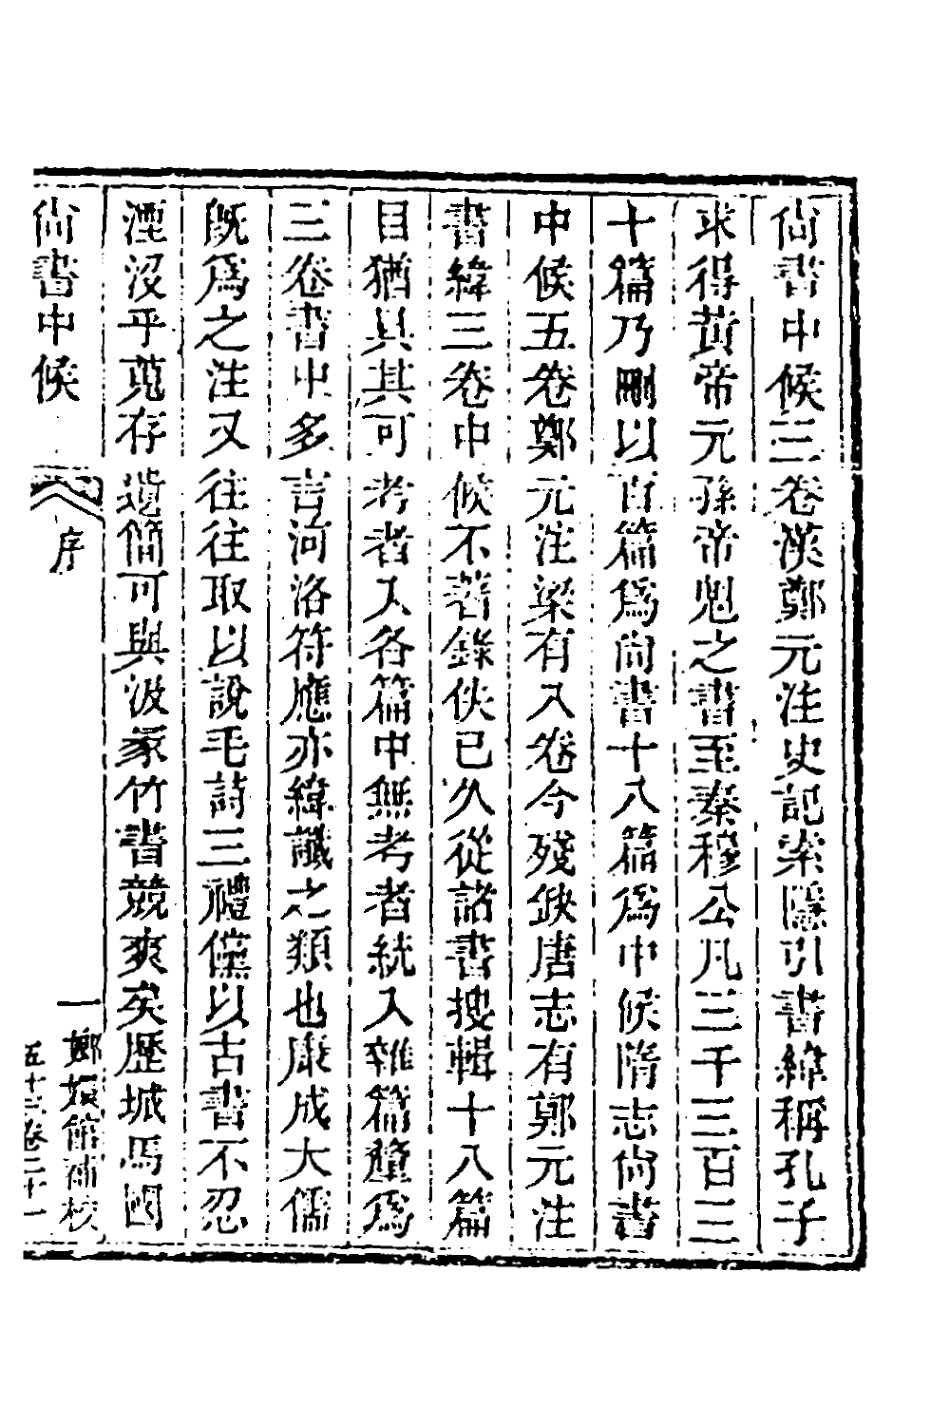 尚書中候三卷漢鄭元注史記索隱引書緯稱孔子
求得黃帝元孫帝魁之書至秦穆公凡三千三百三
十篇乃刪以百篇爲尚書十八篇爲中候隋志尚書
中候五卷鄭元注梁有八卷今殘缺唐志有鄭元注
書緯三卷中候不著錄佚已久從諸書搜輯十八篇
目猶具其可考者入各篇中無考者統入雜篇釐爲
三卷書中多言河洛符應亦緯讖之類也康成大儒
旣爲之注又往往取以說毛詩三禮儻以古書不忍
湮沒乎蒐存遺簡可與汲冢竹書競爽矣歷城馬國
尚書中候 序 一 嫏嬛館補校
五十三卷二十一